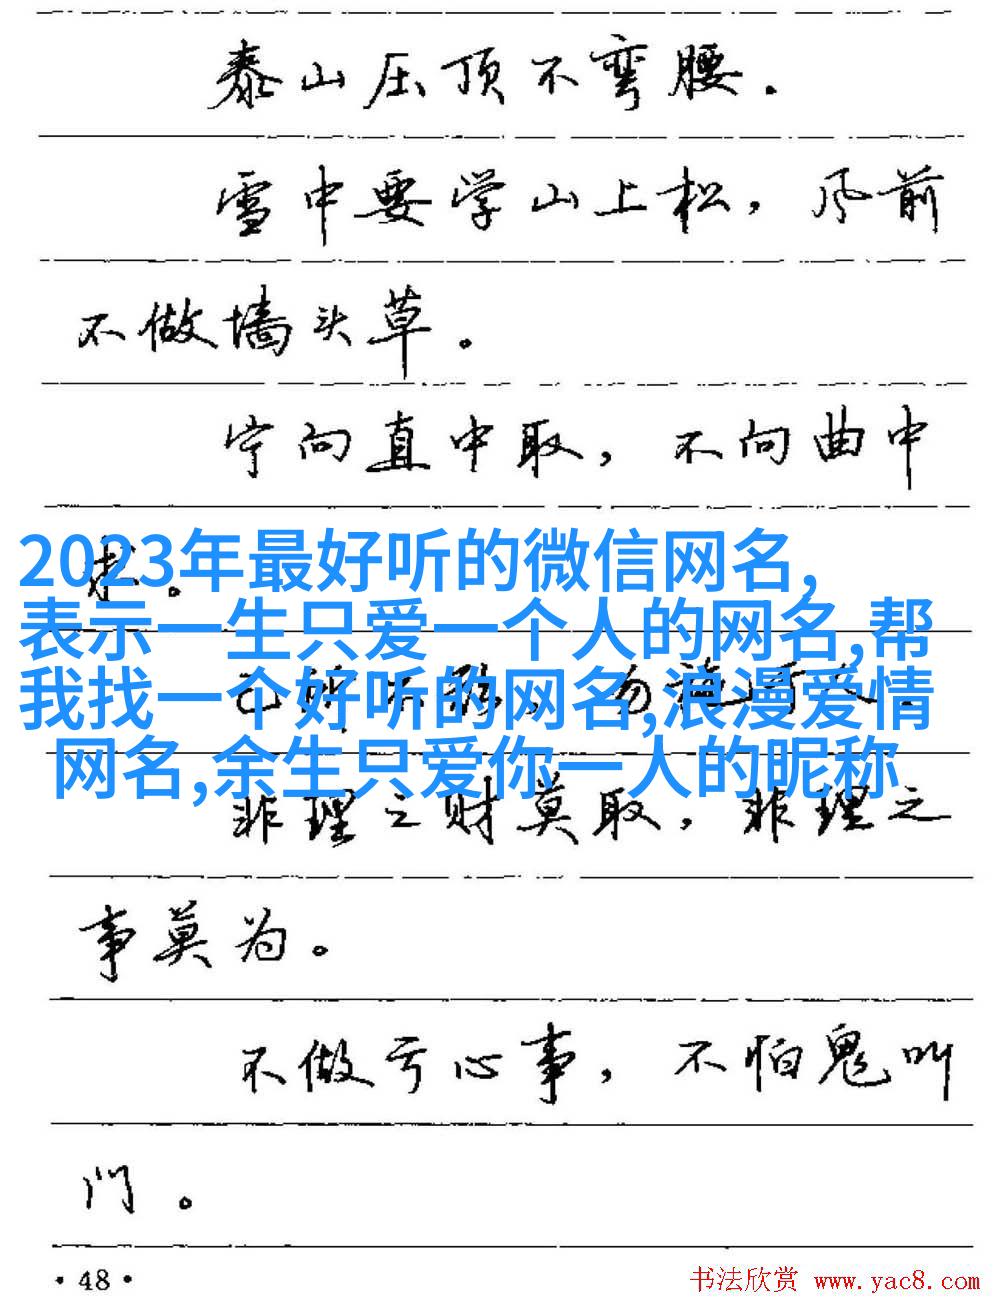 泰山压顶不弯腰.
雪中要学山上松，风前
不做墙头草。
宁向直中取，不向曲中
求。
2023年最好听的微信网名,
表示一生只爱一个人的网名,帮
我找一个好听的网名,浪漫爱情
网名,余生只爱你一人的昵称
非理之财莫取，非理之
事莫为。
不做亏心事，不怕鬼叫
门。
·48·
书法欣赏 www.yac8.com